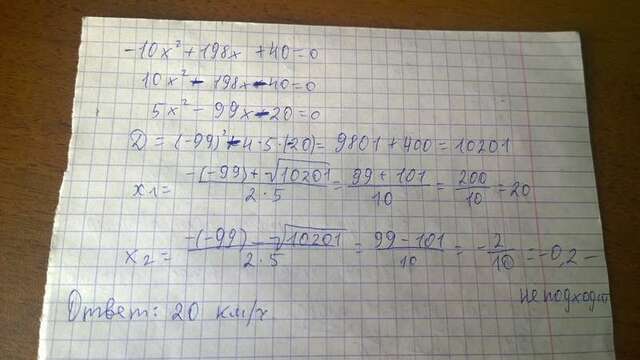 -10x² + 198x + 40 = 0
10x² - 198x - 40 = 0
5x² - 99x - 20 = 0
D = (-99)² - 4·5·(-20) = 9801 + 400 = 10201
x₁ = (-(-99) + √10201)/(2·5) = (99 + 101)/10 = 200/10 = 20
x₂ = (-(-99) - √10201)/(2·5) = (99 - 101)/10 = -2/10 = -0,2 -
не подходит
Ответ: 20 км/ч